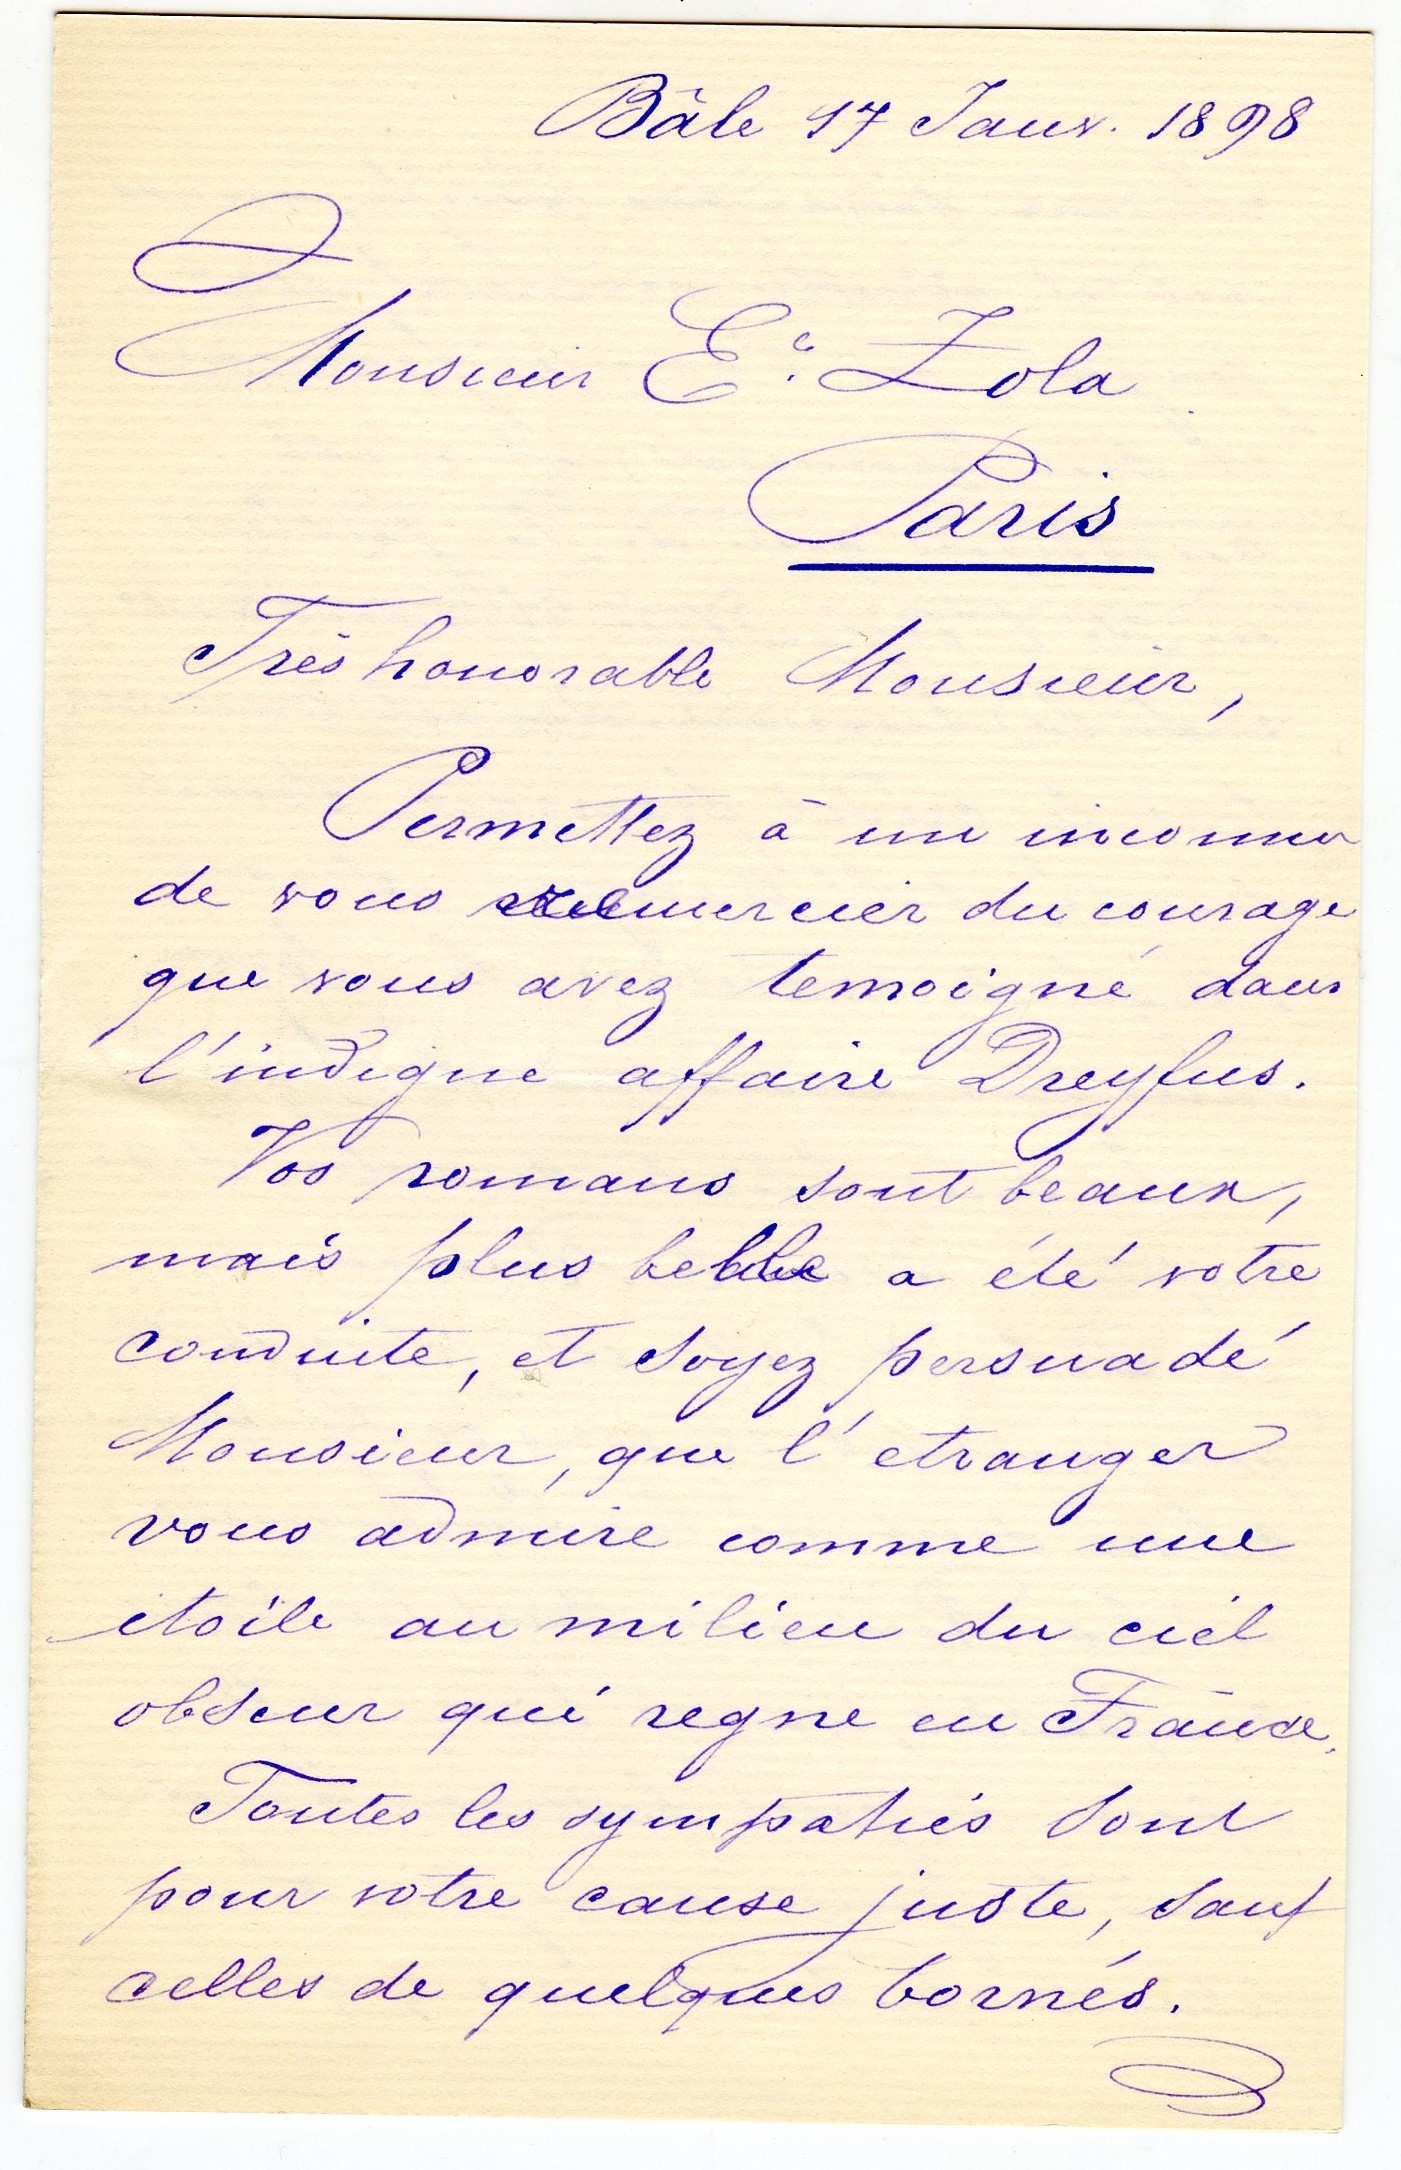 Bâle 17 Janv. 1898
Monsieur Ee. Zola
Paris
Très honorable Monsieur,
Permettez à un inconnu
de vous remercier du courage
que vous avez temoigné dans
l'indigne affaire Dreyfus.
Vos romans sont beaux,
mais plus belle a été votre
conduite, et soyez persuadé
Monsieur, que l'etranger
vous admire comme une
etoile au milieu du ciel
obscur qui regne en France.
Toutes les sympaties sont
pour votre cause juste, sauf
celles de quelques bornés.